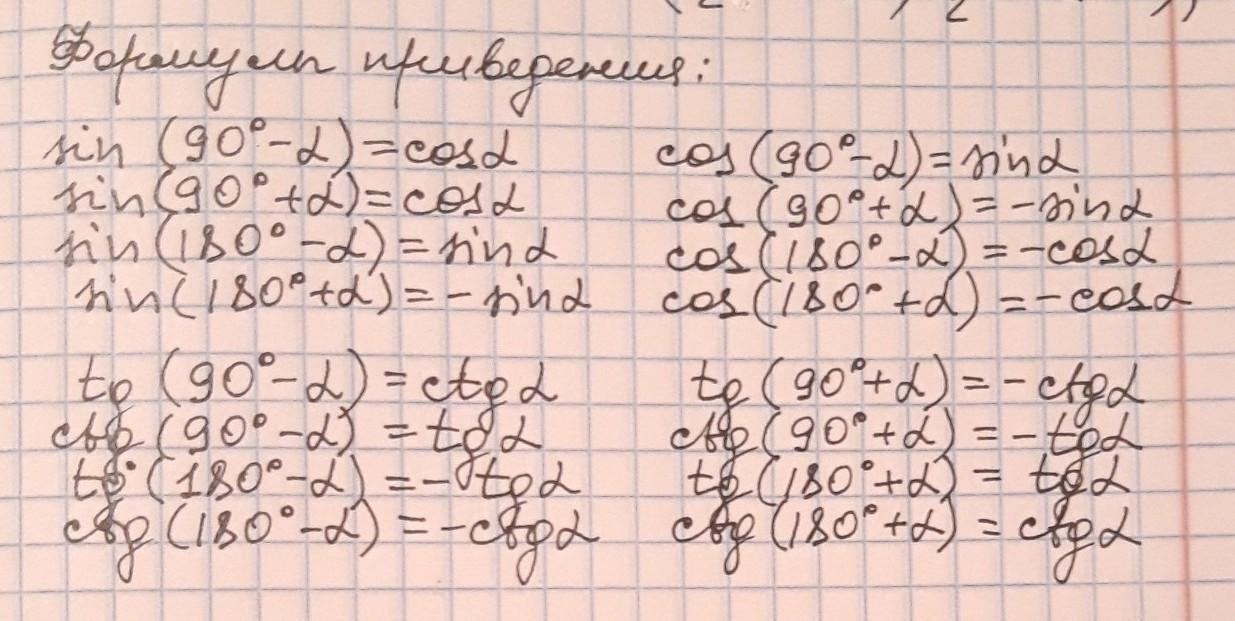 Формулы приведения:
sin (90°-α)=cosα cos(90°-α)=sinα
sin(90°+α)=cosα cos(90°+α)=-sinα
sin(180°-α)=sinα cos(180°-α)=-cosα
sin(180°+α)=-sinα cos(180°+α)=-cosα
tg (90°-α)=ctgα tg(90°+α)=-ctgα
ctg(90°-α)=tgα ctg(90°+α)=-tgα
tg(180°-α)=-tgα tg(180°+α)=tgα
ctg(180°-α)=-ctgα ctg(180°+α)=ctgα